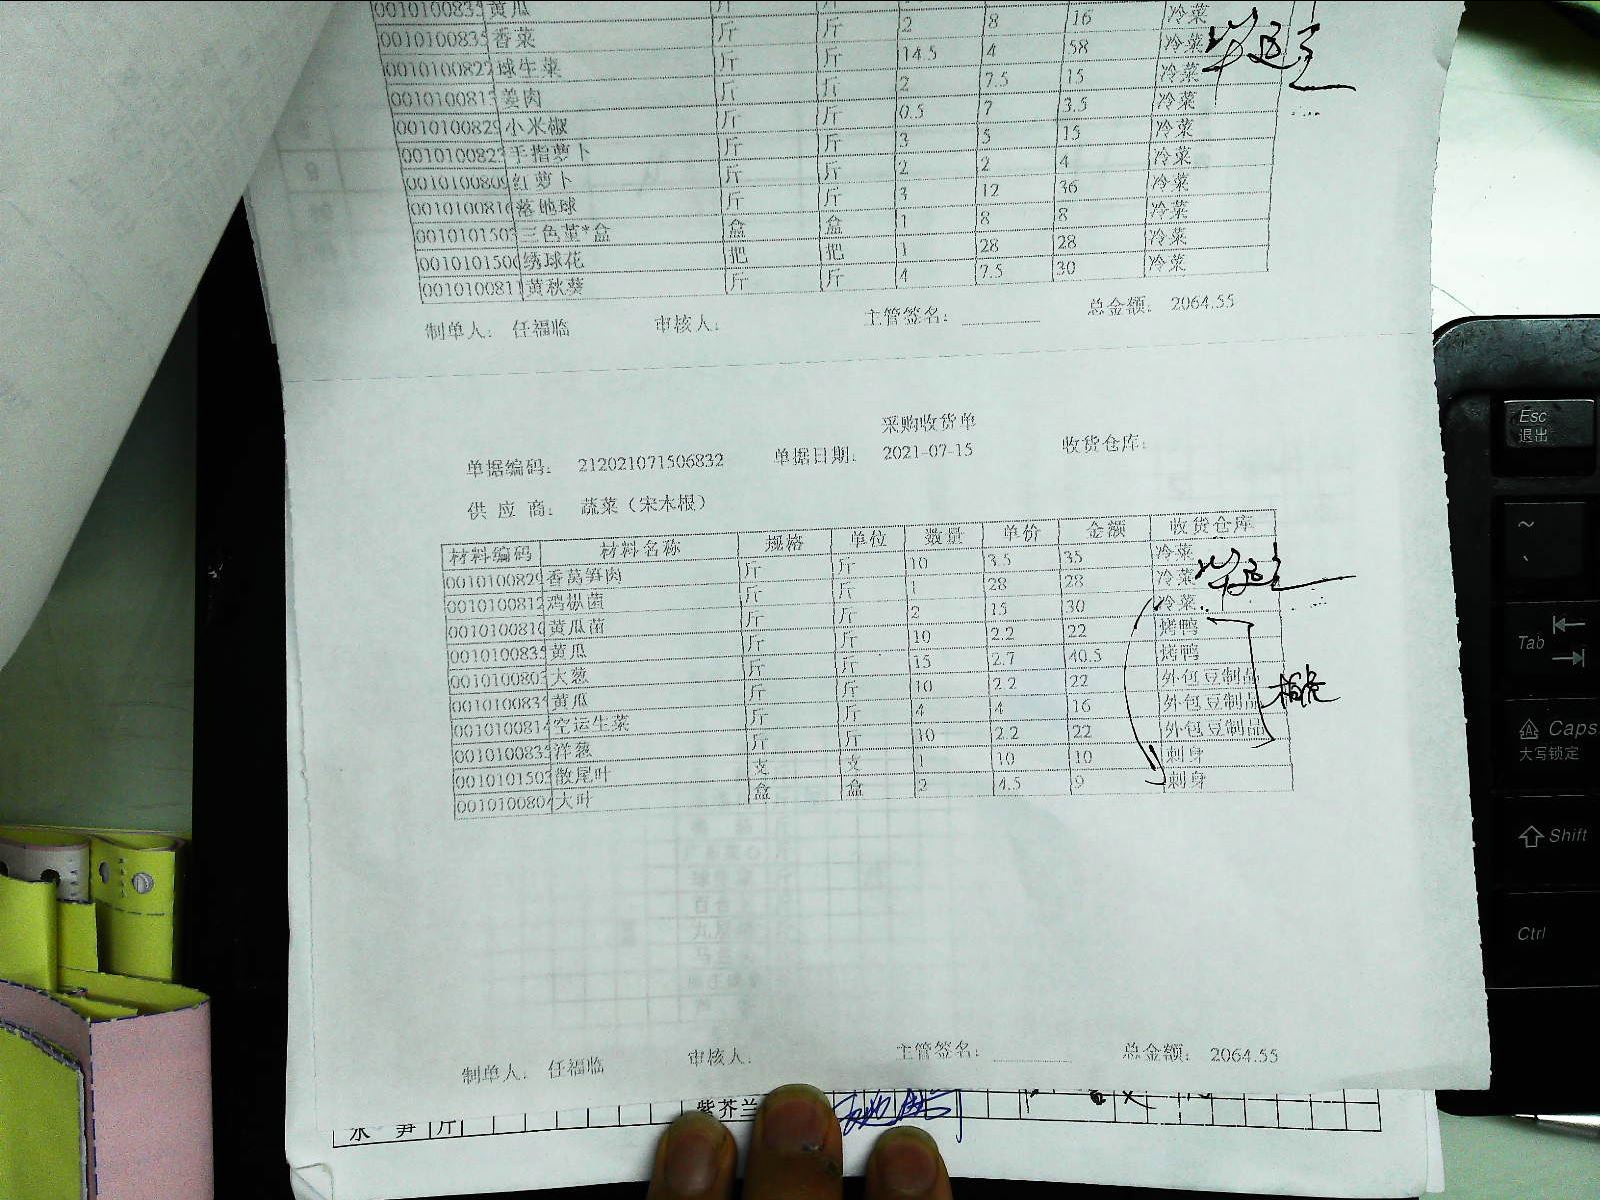 黄瓜 斤 斤 2 8 16 冷菜
0010100835 香菜 斤 斤 14.5 4 58 冷菜
0010100822 球生菜 斤 斤 2 7.5 15 冷菜
0010100815 姜肉 斤 斤 0.5 7 3.5 冷菜
0010100829 小米椒 斤 斤 3 5 15 冷菜
0010100823 手指萝卜 斤 斤 2 2 4 冷菜
0010100809 红萝卜 斤 斤 3 12 36 冷菜
0010100816 落地球 盒 盒 1 8 8 冷菜
0010101505 三色堇*盒 把 把 1 28 28 冷菜
0010101506 绣球花 斤 斤 4 7.5 30 冷菜
0010100811 黄秋葵
制单人: 任福临 审核人: 主管签名: 总金额: 2064.55
采购收货单
单据编码: 212021071506832 单据日期: 2021-07-15 收货仓库:
供应商: 蔬菜(宋木根)
材料编码 材料名称 规格 单位 数量 单价 金额 收货仓库
0010100829 香莴笋肉 斤 斤 10 3.5 35 冷菜
0010100812 鸡枞菌 斤 斤 1 28 28 冷菜
0010100810 黄瓜苗 斤 斤 2 15 30 冷菜
0010100835 黄瓜 斤 斤 10 2.2 22 烤鸭
0010100805 大葱 斤 斤 15 2.7 40.5 烤鸭
0010100835 黄瓜 斤 斤 10 2.2 22 外包豆制品
0010100814 空运生菜 斤 斤 4 4 16 外包豆制品
0010100835 洋葱 斤 斤 10 2.2 22 外包豆制品
0010101503 散尾叶 支 支 1 10 10 刺身
0010100804 大叶 盒 盒 2 4.5 9 刺身
制单人: 任福临 审核人: 主管签名: 总金额: 2064.55
紫芥兰
水笋 斤
Esc
退出
~
Tab
Caps
大写锁定
Shift
Ctrl